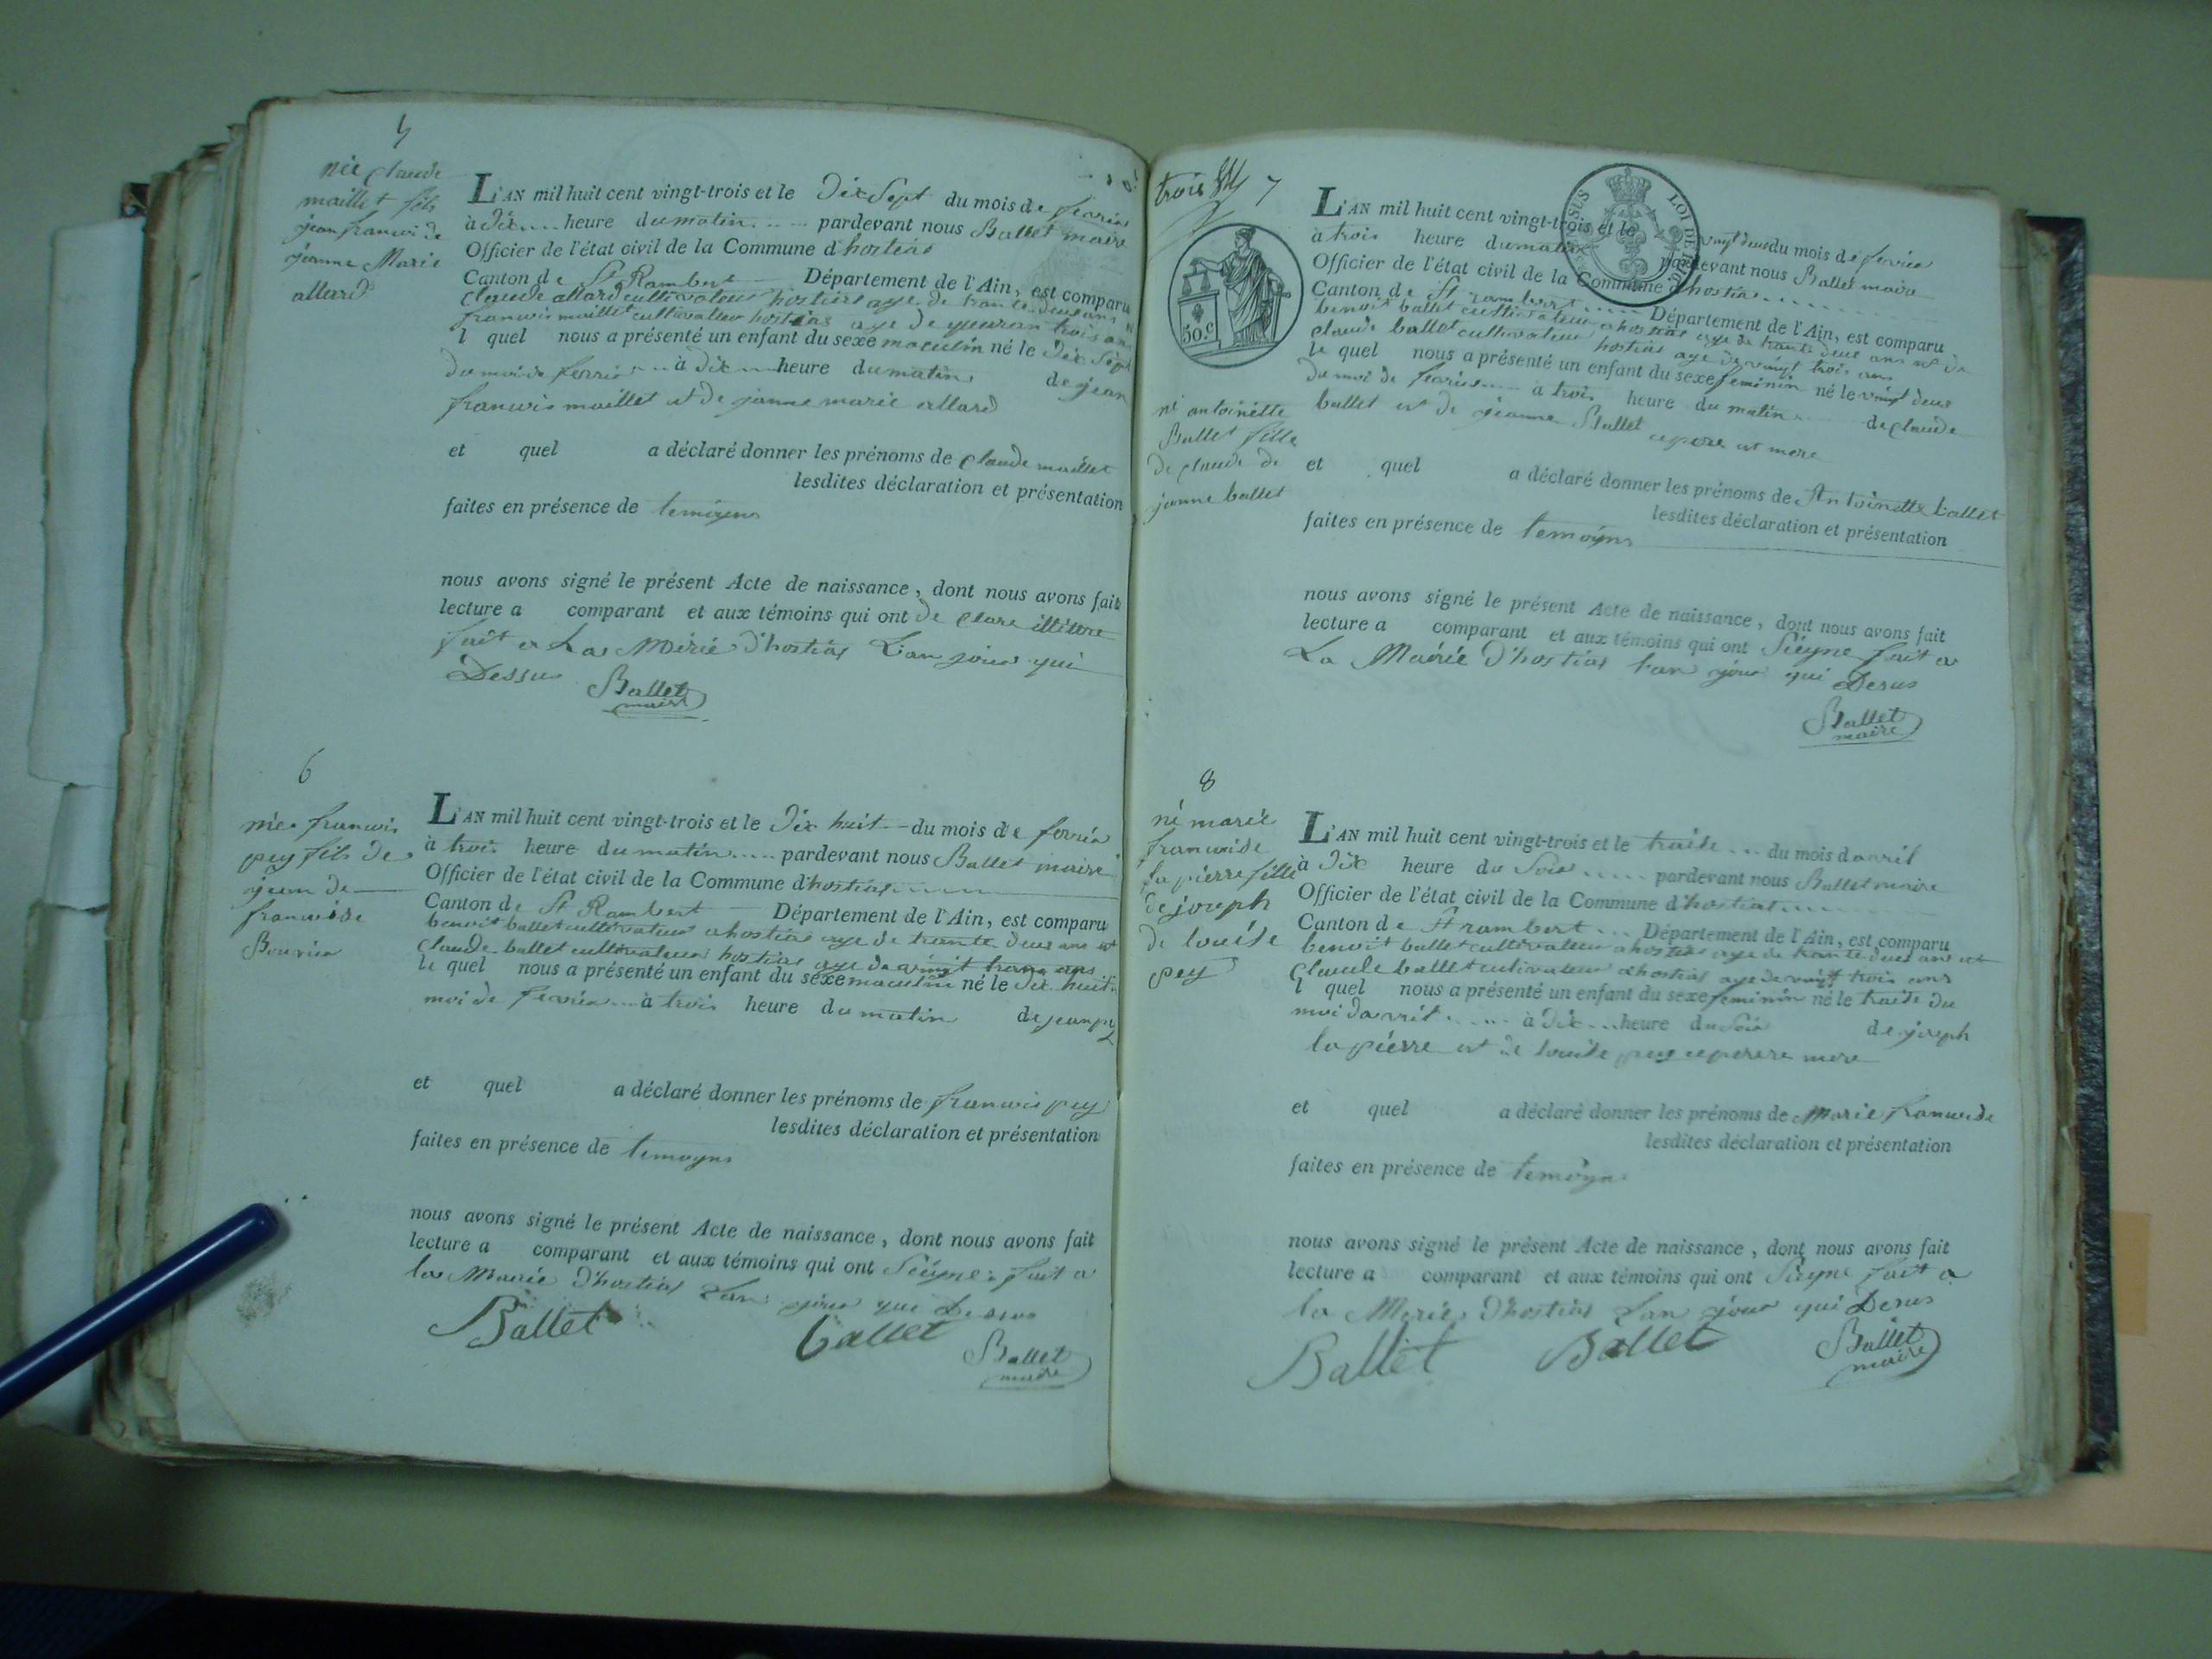 5
née Claude
maillet fils
jean francoi de
jeanne Marie
allard
L'AN mil huit cent vingt-trois et le Dix Sept du mois de fevrier
à Dix.... heure du matin..... pardevant nous Ballet maire
Officier de l'état civil de la Commune d'hostias
Canton de St Rambert Département de l'Ain, est comparu
Claude allard cultivateur hostias age de trante deus ans
francois maillet cultivateur hostias age de trois ans
l quel nous a présenté un enfant du sexe maculin né le Dix Sept
du moi de ferrier à Dix heure du matin de jean
francois maillet et de janne marie allard
et quel a déclaré donner les prénoms de Claude maillet
lesdites déclaration et présentation
faites en présence de temoyns
nous avons signé le présent Acte de naissance, dont nous avons fait
lecture a comparant et aux témoins qui ont de clare illittere
fait a La Mérié D'hostias L'an jour qui
Dessus
Ballet
maire
6
née francois
pey fils de
jean de
francoise
Bouvier
L'AN mil huit cent vingt-trois et le Dix huit du mois de fevrier
à trois heure du matin..... pardevant nous Ballet maire
Officier de l'état civil de la Commune d'hostias
Canton de St Rambert Département de l'Ain, est comparu
benoit ballet cultivateur a hostias age de trante deus ans et
Claude ballet cultivateur hostias age de vingt trois ans
le quel nous a présenté un enfant du sexe maculin né le Dix huit
moi de fevrier... à trois heure du matin de jean pey
et quel a déclaré donner les prénoms de francois pey
lesdites déclaration et présentation
faites en présence de temoyns
nous avons signé le présent Acte de naissance, dont nous avons fait
lecture a comparant et aux témoins qui ont Sieyne fait a
la Mairie D'hostias L'an jour qui Desus
Ballet ballet Ballet
maire
trois 7
SUS LOI DE
50.c
né antoinette
Ballet fille
de Claude de
janne ballet
L'AN mil huit cent vingt-trois et le vingt deus du mois de fevrier
à trois heure du matin pardevant nous Ballet maire
Officier de l'état civil de la Commune d'hostias
Canton de St rambert Département de l'Ain, est comparu
benoit ballet cultivateur a hostias age de trante deus ans et de
claude ballet cultivateur hostias age de vingt trois ans
le quel nous a présenté un enfant du sexe feminin né le vingt deus
du moi de fevrier..... a trois heure du matin de Claude
ballet et de jeanne Ballet ce pere et mere
et quel a déclaré donner les prénoms de Antoinette ballet
lesdites déclaration et présentation
faites en présence de temoyns
nous avons signé le présent Acte de naissance, dont nous avons fait
lecture a comparant et aux témoins qui ont Sieyne fait a
La Mairie D'hostias l'an jour qui Desus
Ballet
maire
8
né marie
francoise
lapierre fille
de joseph
de louise
pey
L'AN mil huit cent vingt-trois et le traite... du mois davril
à Dix heure du Soir..... pardevant nous Ballet maire
Officier de l'état civil de la Commune d'hostias
Canton de St rambert... Département de l'Ain, est comparu
benoit ballet cultivateur a hostias age de trante deus ans et
Claude ballet cultivateur a hostias age de vingt trois ans
l quel nous a présenté un enfant du sexe feminin né le traite du
moi davril..... à Dix... heure du Soir de joseph
la pierre et de louise pey ce pere mere
et quel a déclaré donner les prénoms de Marie francoise
lesdites déclaration et présentation
faites en présence de temoyn
nous avons signé le présent Acte de naissance, dont nous avons fait
lecture a comparant et aux témoins qui ont Sieyne fait a
la Merie D'hostias L'an jour qui Desus
Ballet Ballet Ballet
maire